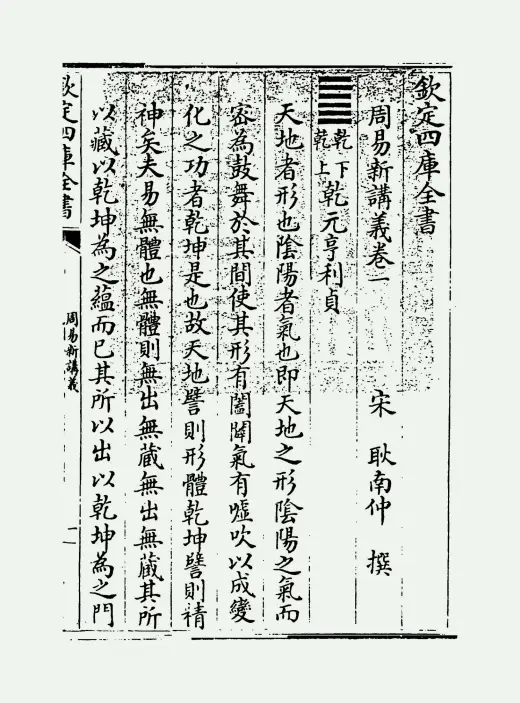 欽定四庫全書
周易新講義卷一
宋 耿南仲 撰
乾下
乾上
乾元亨利貞
天地者形也陰陽者氣也即天地之形陰陽之氣而
密為鼓舞於其間使其形有闔闢氣有噓吹以成變
化之功者乾坤是也故天地譬則形體乾坤譬則精
神矣夫易無體也無體則無出無藏無出無藏其所
以藏以乾坤為之蘊而已其所以出以乾坤為之門
欽定四庫全書
周易新講義
一